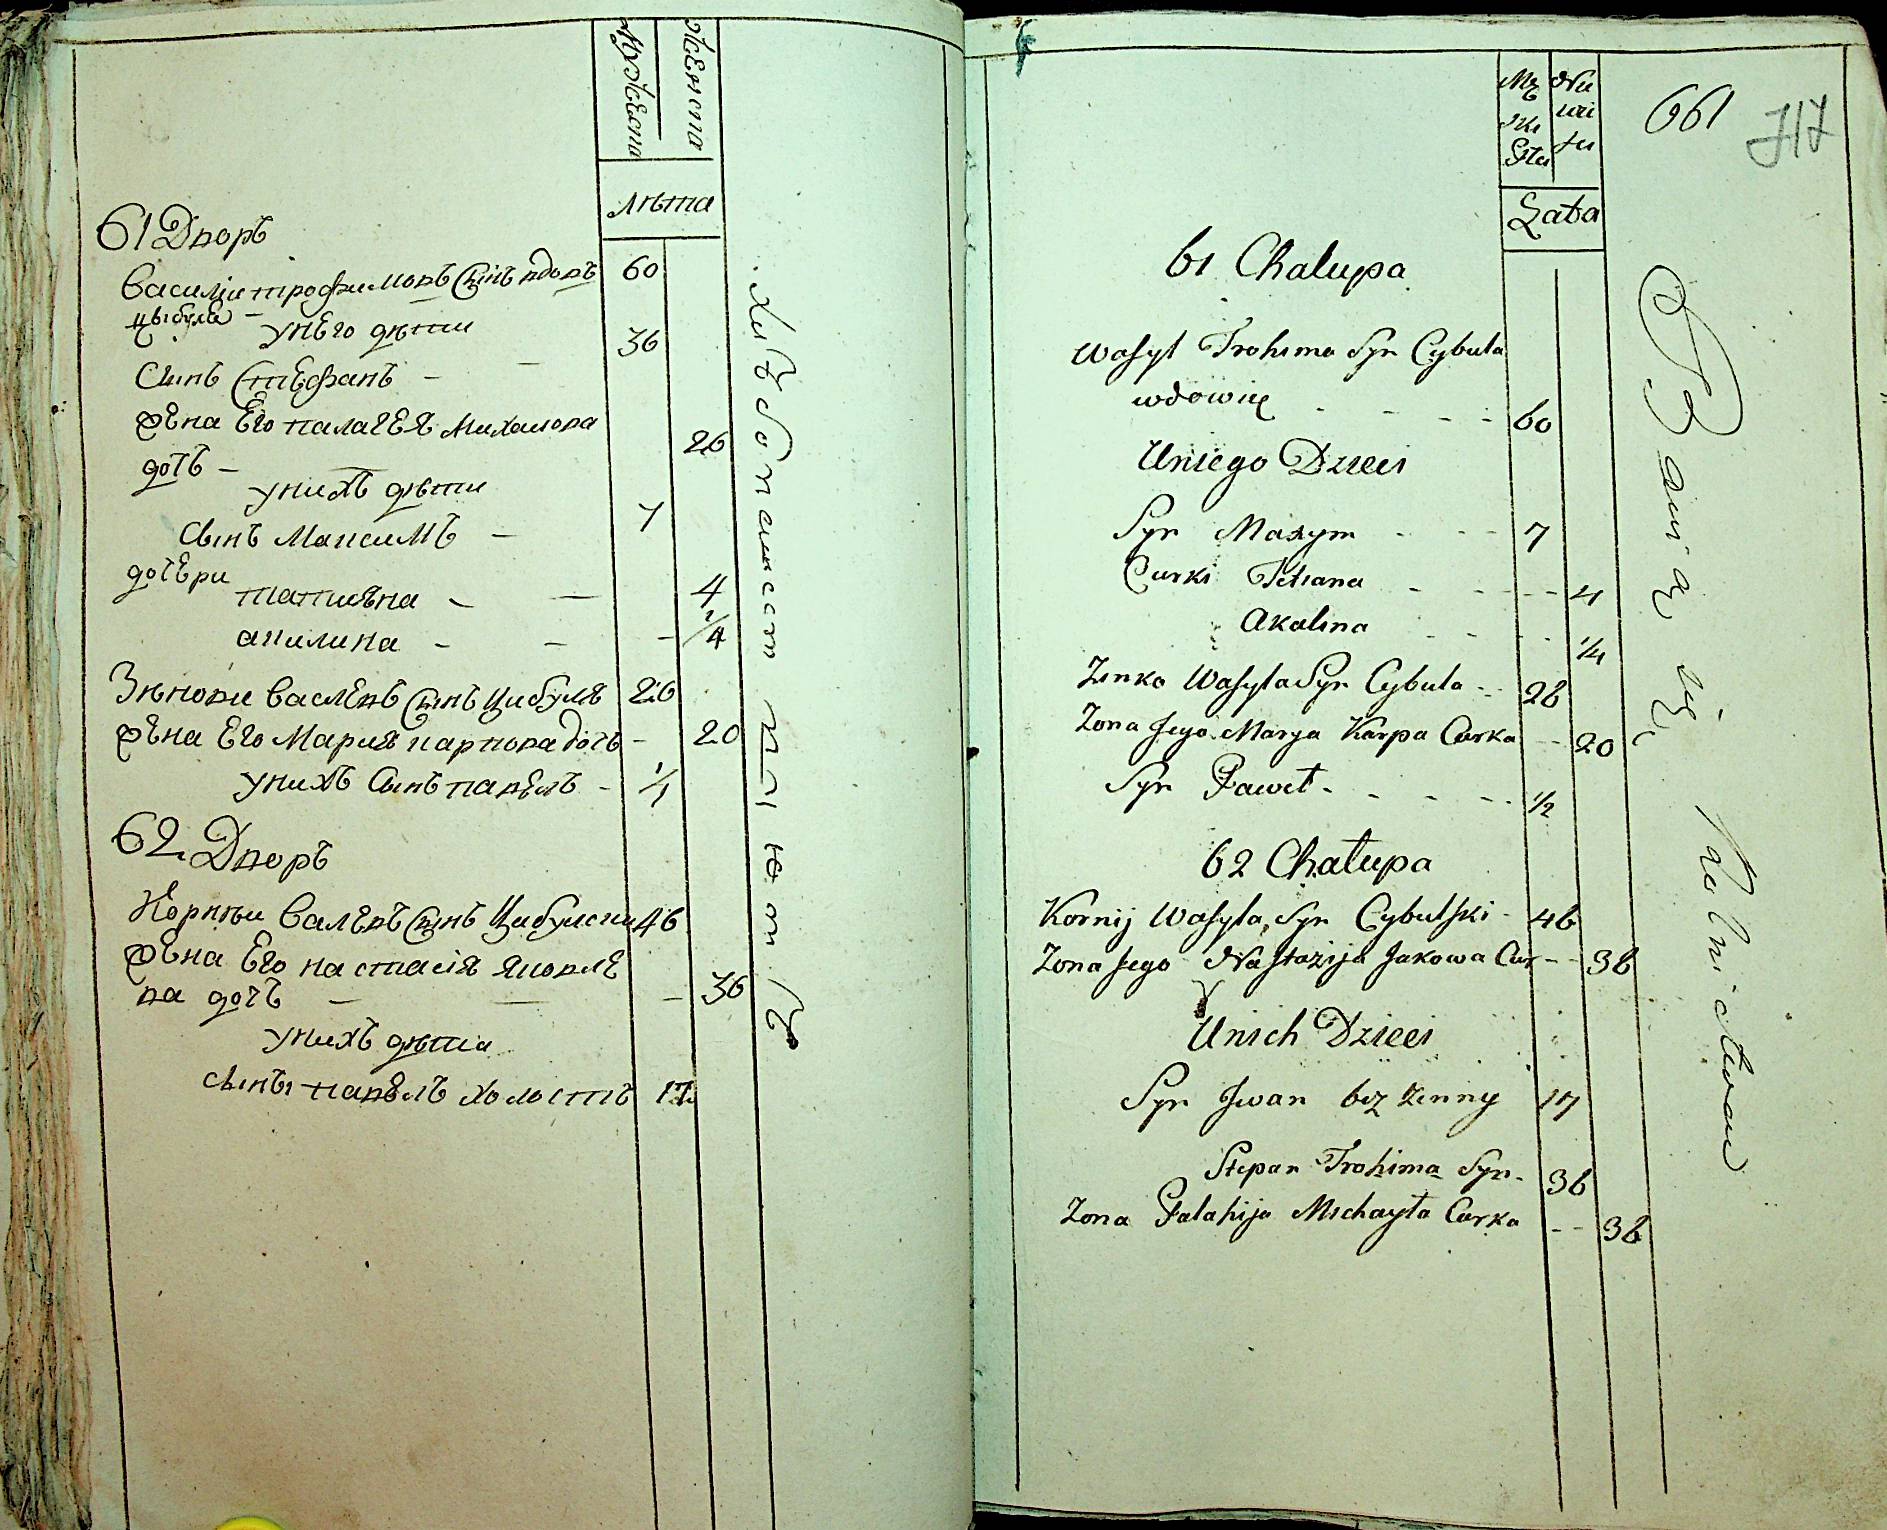 Мужеска
Женска
Лѣта
61 Дворъ
Василіи трофимовъ Сынъ вдовъ 60
цыбуля
унего дѣти
Сынъ Стефанъ - 36
жена Его палагея Михаилова
дочь - 26
унихъ дѣти
Сынъ Максимъ - 7
дочери
татияна - 4
акилина - 1/4
Зѣнови Василевъ Сынъ Цибуля 26
жена Его Мария карпова дочь - 20
унихъ Сынъ павелъ - 1/4
62 Дворъ
Корнѣи Васлевъ Сынъ Цибулски 46
жена Его настасія яковле
ва дочь - 36
унихъ дѣти
сынъ павелъ холостъ 17
Хлѣбопашест
661
717
Męskie
Lata
61 Chalupa
Wasyl Trohima Syn Cybula
wdowiec - 60
Uniego Dzieci
Syn Maxym - 7
Curki Tetiana - 4
Akalina - 1/4
Zinko Wasyla Syn Cybula - 26
Zona Jego Marya Karpa Curka - 20
Syn Paweł - 1/2
62 Chałupa
Kornij Wasyla Syn Cybulski - 46
Zona Jego Nastazija Jakowa Cur - 36
Unich Dzieci
Syn Jwan bez zenny 17
Stepan Trohima Syn - 36
Zona Palahija Michayła Curka - 36
Bawią się